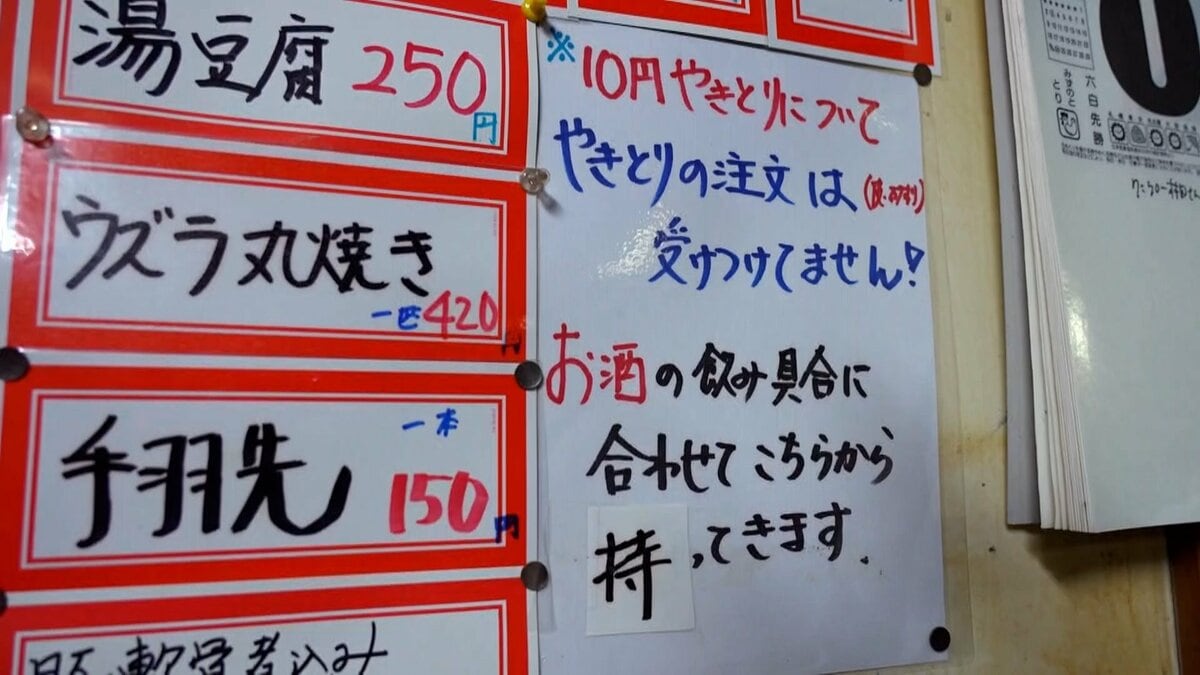 湯豆腐 250円
ウズラ丸焼き
一匹420円
手羽先
一本
150円
軟骨煮込み
※10円やきとりについて
やきとりの注文は
受けつけてません!
お酒の飲み具合に
合わせてこちらから
持ってきます.
六白先勝
みずのととり